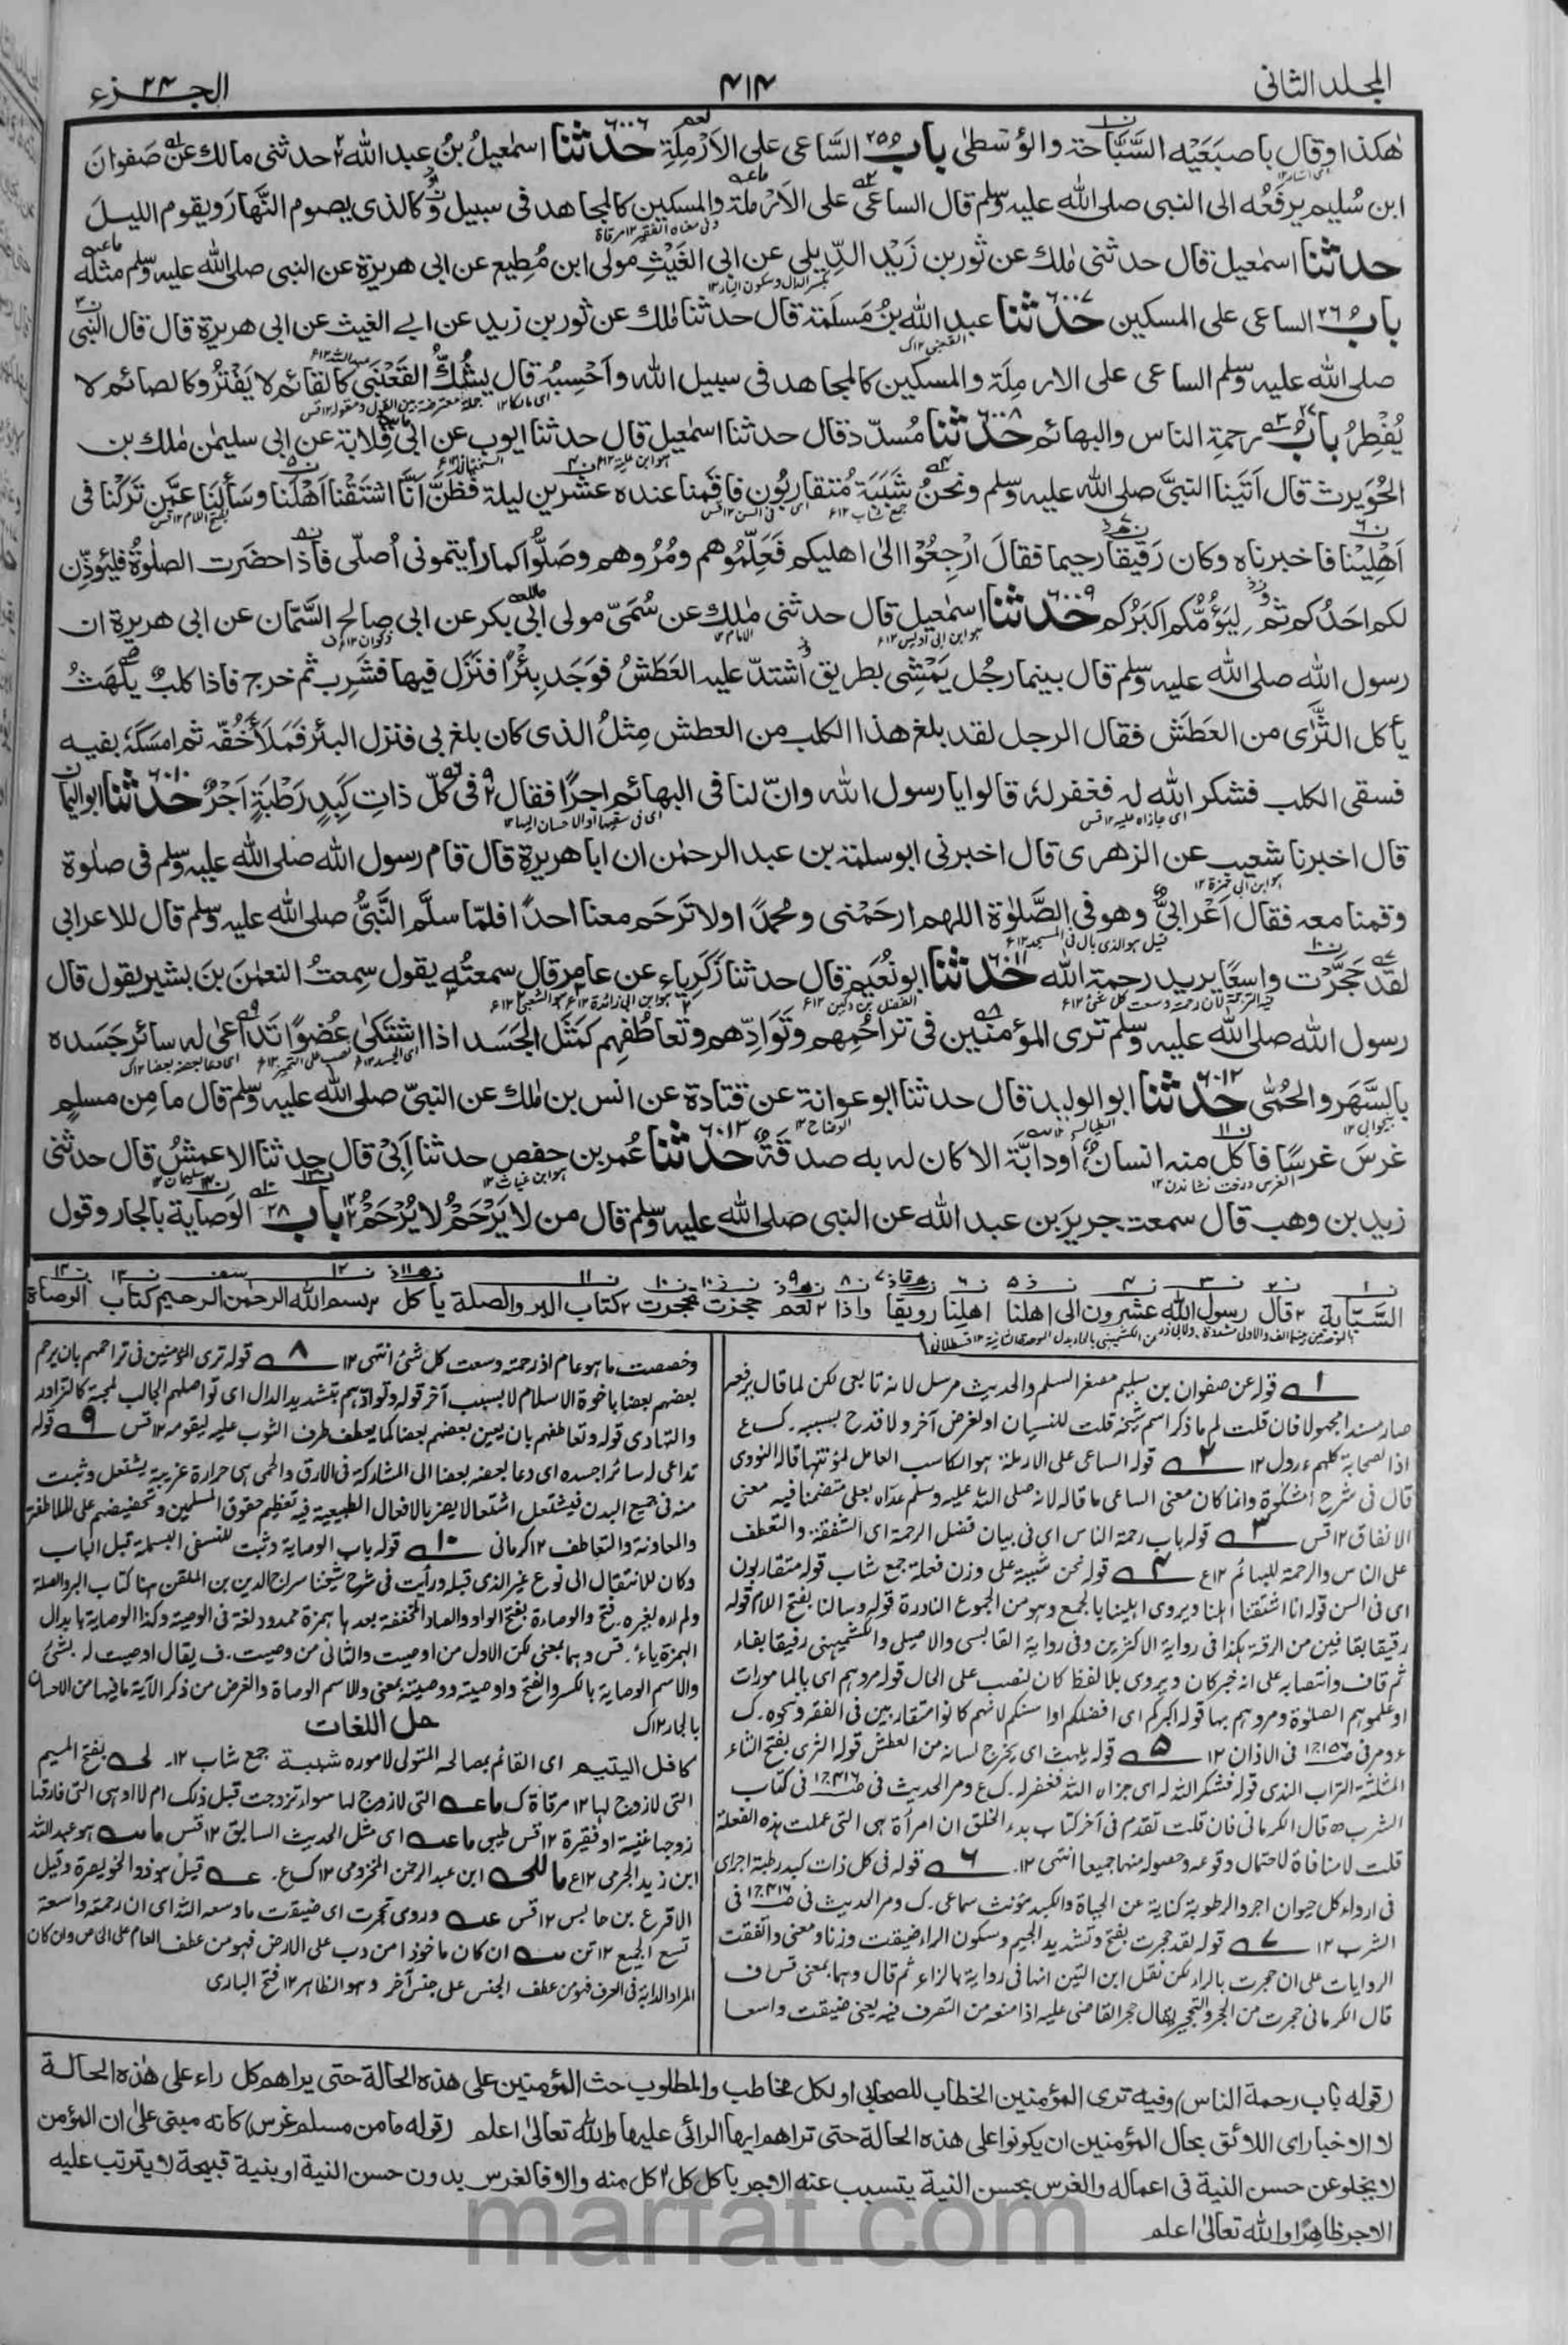 المجلد الثانى
٤١٤
الجزء ٢٤
هٰكذا وقال باصبعَيْه السَّبَّاحة والوُسْطىٰ باب ٢٥ السَّاعى على الاَرْمِلَةِ ٦٠٠٦ حدثنا اسمٰعيلُ بنُ عبد الله ٢ حدثنى مالك عن صَفوانَ
ابن سُليم يرفَعُه الى النبى صلى الله عليه وسلم قال الساعى على الاَرْملة والمسكين كالمجاهد فى سبيل الله وكالذى يصوم النَّهارَ ويقوم الليلَ
حدثنا اسمٰعيل قال حدثنى مٰلك عن ثور بن زَيْد الدِّيلى عن ابى الغَيْثِ مولى ابن مُطِيع عن ابى هريرة عن النبى صلى الله عليه وسلم مثله
باب ٢٦ الساعى على المسكين ٦٠٠٧ حدثنا عبد الله بنُ مَسلَمَة قال حدثنا مٰلك عن ثور بن زيد عن ابى الغيث عن ابى هريرة قال قال النبى
صلى الله عليه وسلم الساعى على الارملَة والمسكين كالمجاهد فى سبيل الله وأحْسِبُه قال يشُكُّ القَعْنَبى كالقائم لا يَفْتُرُ وكالصائم لا
يُفْطِرُ باب ٢٧ رحمةِ الناس والبهائم ٦٠٠٨ حدثنا مُسدّد قال حدثنا اسمٰعيل قال حدثنا ايوب عن ابى قِلابة عن ابى سليمٰن مٰلك بن
الحُوَيرث قال اَتَينا النبىَّ صلى الله عليه وسلم ونحنُ شَبَبَة مُتقارِبُون فاقمنا عنده عشرين ليلة فظنَّ اَنَّا اشتَقْنا اَهْلَنا وسَألَنا عمَّن تَرَكْنا فى
اَهْلِيْنا فاخبرناه وكان رَفيقا رحيما فقالَ ارْجِعُوْا الىٰ اهليكم فَعَلِّمُوهم ومُرُوهم وصَلُّوا كما رأيتمونى اُصلّى فاذا حضَرَت الصلوٰة فليُؤذِّن
لكم احَدُكم ثم لِيَؤُمَّكم اكبَرُكم ٦٠٠٩ حدثنا اسمٰعيل قال حدثنى مٰلك عن سُمَىّ مولى ابى بكر عن ابى صالح السَّمّان عن ابى هريرة ان
رسول الله صلى الله عليه وسلم قال بينما رجُل يَمْشِى بطريق اشتدّ عليه العَطَشُ فوَجَد بِئْرًا فنَزَل فيها فشَرِب ثم خرج فاذا كلبٌ يلْهَثُ
يأكل الثَّرٰى من العَطَش فقال الرجل لقد بلغ هذا الكلب من العطش مِثلُ الذى كان بلغ بى فنزل البئر فمَلَأ خُفَّه ثم امسَكَهٗ بفيه
فسقى الكلب فشكر اللهُ له فغفر لهٗ قالوا يا رسول الله وانّ لنا فى البهائم اجرًا فقال فى كلّ ذاتِ كَبِدٍ رَطْبَةٍ اَجْرٌ ٦٠١٠ حدثنا ابو اليمان
قال اخبرنا شعيب عن الزهرى قال اخبرنى ابو سلمة بن عبد الرحمٰن ان ابا هريرة قال قام رسول الله صلى الله عليه وسلم فى صلوٰة
وقمنا معه فقال اَعْرابىٌّ وهو فى الصَّلوٰة اللهم ارحَمْنى ومُحمدًا ولا تَرحَم معنا احدًا فلمّا سلَّم النَّبىُّ صلى الله عليه وسلم قال للاعرابى
لقد حَجَّرْت واسعًا يريد رحمة الله ٦٠١١ حدثنا ابو نُعَيم قال حدثنا زَكَرِياء عن عامر قال سمعتُه يقول سِمعتُ النعمٰنَ بنَ بشير يقول قال
رسول الله صلى الله عليه وسلم ترى المؤمنين فى تراحُمِهم وتَوَادِّهم وتعاطُفِهم كمَثَل الجَسَد اذا اشتكىٰ عُضوًا تَداعىٰ له سائر جَسَده
بالسَّهَر والحُمّٰى ٦٠١٢ حدثنا ابو الوليد قال حدثنا ابو عوانة عن قتادة عن انس بن مٰلك عن النبىّ صلى الله عليه وسلم قال ما مِن مسلمٍ
غرسَ غرسًا فاكل منه انسانٌ او دابَّة الا كان له به صدقةٌ ٦٠١٣ حدثنا عُمر بن حفص حدثنا اَبِىْ قال حدثنا الاعمشُ قال حدثنى
زيد بن وهب قال سمعت جريرَ بن عبد الله عن النبى صلى الله عليه وسلم قال من لا يَرْحَمُ لا يُرْحَمُ باب ٢٨ الوَصاية بالجار وقول
السَّبَّابة ٢ قال رسول الله عشرون الى اهلنا اهلِنا رويقا واذا ٢ نعم حجزت تحجرت ٢ كتاب البر والصلة يأكل ٢ بسم الله الرحمن الرحيم كتاب الوصاة
١ قوله عن صفوان بن سليم مصغر السلم والحديث مرسل لانه تابعى لكن لما قال يرفعه
صار مسندا مجهولا فان قلت لم ما ذكر اسم شيخه قلت للنسيان او لغرض آخر ولا قدح بسببه ك ع
اذ الصحابة كلهم عدول ١٢ ٢ قوله الساعى على الارملة هو الكاسب العامل لمؤنتها قاله النووى
قال فى شرح المشكوة وانما كان معنى الساعى ما قاله لانه صلى الله عليه وسلم عداه بعلى متضمنا فيه معنى
الانفاق ١٢ قس ٣ قوله باب رحمة الناس اى فى بيان فضل الرحمة اى الشفقة والتعطف
على الناس والرحمة للبهائم ١٢ ع ٤ قوله نحن شببة على وزن فعلة جمع شاب قوله متقاربون
اى فى السن قوله انا اشتقنا اهلنا ويروى اهلينا بالجمع وهو من الجموع النادرة قوله وسالنا بفتح اللام قوله
رقيقا بقافين من الرقة هكذا فى رواية الاكثرين وفى رواية القابسى والاصيلى والكشميهنى رفيقا بفاء
ثم قاف وانتصابه على انه خبر كان ويروى بلا لفظ كان نصب على الحال قوله مروهم اى بالمامورات
او علموهم الصلوة ومروهم بها قوله اكبركم اى افضلكم او اسنكم لانهم كانوا متقاربين فى الفقه ونحوه ك
ع ومر فى فى الاذان ١٢ ٥ قوله يلهث اى يخرج لسانه من العطش قوله الثرى بفتح الثاء
المثلثة التراب الندى قوله فشكر الله له اى جزاه الله فغفر له ك ع ومر الحديث فى فى كتاب
الشرب قال الكرمانى فان قلت تقدم فى آخر كتاب بدء الخلق ان امرأة هى التى عملت هذه الفعلة
قلت لا منافاة لاحتمال وقوعه وحصوله منهما جميعا انتهى ١٢ ٦ قوله فى كل ذات كبد رطبة اجر اى
فى ارواء كل حيوان اجر والرطوبة كناية عن الحياة والكبد مؤنث سماعى ك ومر الحديث فى فى
الشرب ١٢ ٧ قوله لقد حجرت بفتح وتشديد الجيم وسكون الراء ضيقت وزنا ومعنى واتفقت
الروايات على ان حجرت بالراء لكن نقل ابن التين انها فى رواية بالزاء ثم قال وهما بمعنى قس ف
قال الكرمانى حجرت من الحجر والتحجير يقال حجر القاضى عليه اذا منعه من التصرف فيه يعنى ضيقت واسعا
وخصصت ما هو عام اذ رحمته وسعت كل شئ انتهى ١٢ ٨ قوله ترى المؤمنين فى تراحمهم بان يرحم
بعضهم بعضا باخوة الاسلام لا بسبب آخر قوله وتوادهم بتشديد الدال اى تواصلهم الجالب لمحبة كالتزاور
والتهادى قوله وتعاطفهم بان يعين بعضهم بعضا كما يعطف طرف الثوب عليه ليقومه ١٢ قس ٩ قوله
تداعى له سائر جسده اى دعا بعضه بعضا الى المشاركة فى الارق والحمى هى حرارة غريبة يشتعل وثبت
منه فى جميع البدن فيشتعل اشتعالا يضر بالافعال الطبيعية فيه تعظيم حقوق المسلمين وتحضيضهم على الملاطفة
والمعاونة والتعاطف ١٢ كرمانى ١٠ قوله باب الوصاية وثبت للنسفى البسملة قبل الباب
وكان للانتقال الى نوع غير الذى قبله ورأيت فى شرح شيخنا سراج الدين بن الملقن هنا كتاب البر والصلة
ولم اره لغيره فتح والوصاءة بفتح الواو والصاد المخففة بعدها همزة ممدود لغة فى الوصية وكذا الوصاية بابدال
الهمزة ياء قس وهما بمعنى لكن الاول من اوصيت والثانى من وصيت ف يقال اوصيت له بشئ
والاسم الوصاية بالكسر والفتح واوصيته ووصيته بمعنى والاسم الوصاة والغرض من ذكر الآية ما فيها من الاحسان
بالجار ١٢ ك
حل اللغات
كافل اليتيم اى القائم بمصالحه المتولى لاموره شببة جمع شاب ١٢ بفتح الميم
التى لا زوج لها ١٢ مرقاة ك التى لا زوج لها سواء تزوجت قبل ذلك ام لا او هى التى فارقها
زوجها غنية او فقيرة ١٢ قس طيبى اى مثل الحديث السابق ١٢ قس هو عبد الله
ابن زيد الجرمى ١٢ ع ابن عبد الرحمن المخزومى ١٢ ك ع قيل هو ذو الخويصرة وقيل
الاقرع بن حابس ١٢ قس وروى تحجرت اى ضيقت ما وسعه الله اى ان رحمته واسعة
تسع الجميع ١٢ ان كان ماخوذا من دب على الارض فهو من عطف العام على الخاص وان كان
المراد الدابة فى العرف فهو من عطف الجنس على جنس آخر وهو الظاهر ١٢ فتح البارى
(قوله باب رحمة الناس) وفيه ترى المؤمنين الخطاب للصحابى او لكل مخاطب والمطلوب حث المؤمنين على هذه الحالة حتى يراهم كل راء على هٰذه الحالة
لا الاخبار اى اللائق بحال المؤمنين ان يكونوا على هذه الحالة حتى تراهم ايها الرائى عليها والله تعالىٰ اعلم (قوله ما من مسلم غرس) كانه مبنى علىٰ ان المؤمن
لا يخلو عن حسن النية فى اعماله والغرس بحسن النية يتسبب عنه الاجر باكل كل اٰكل منه والا فالغرس بدون حسن النية او بنية قبيحة لا يترتب عليه
الاجر ظاهرًا والله تعالىٰ اعلم
marfat.com